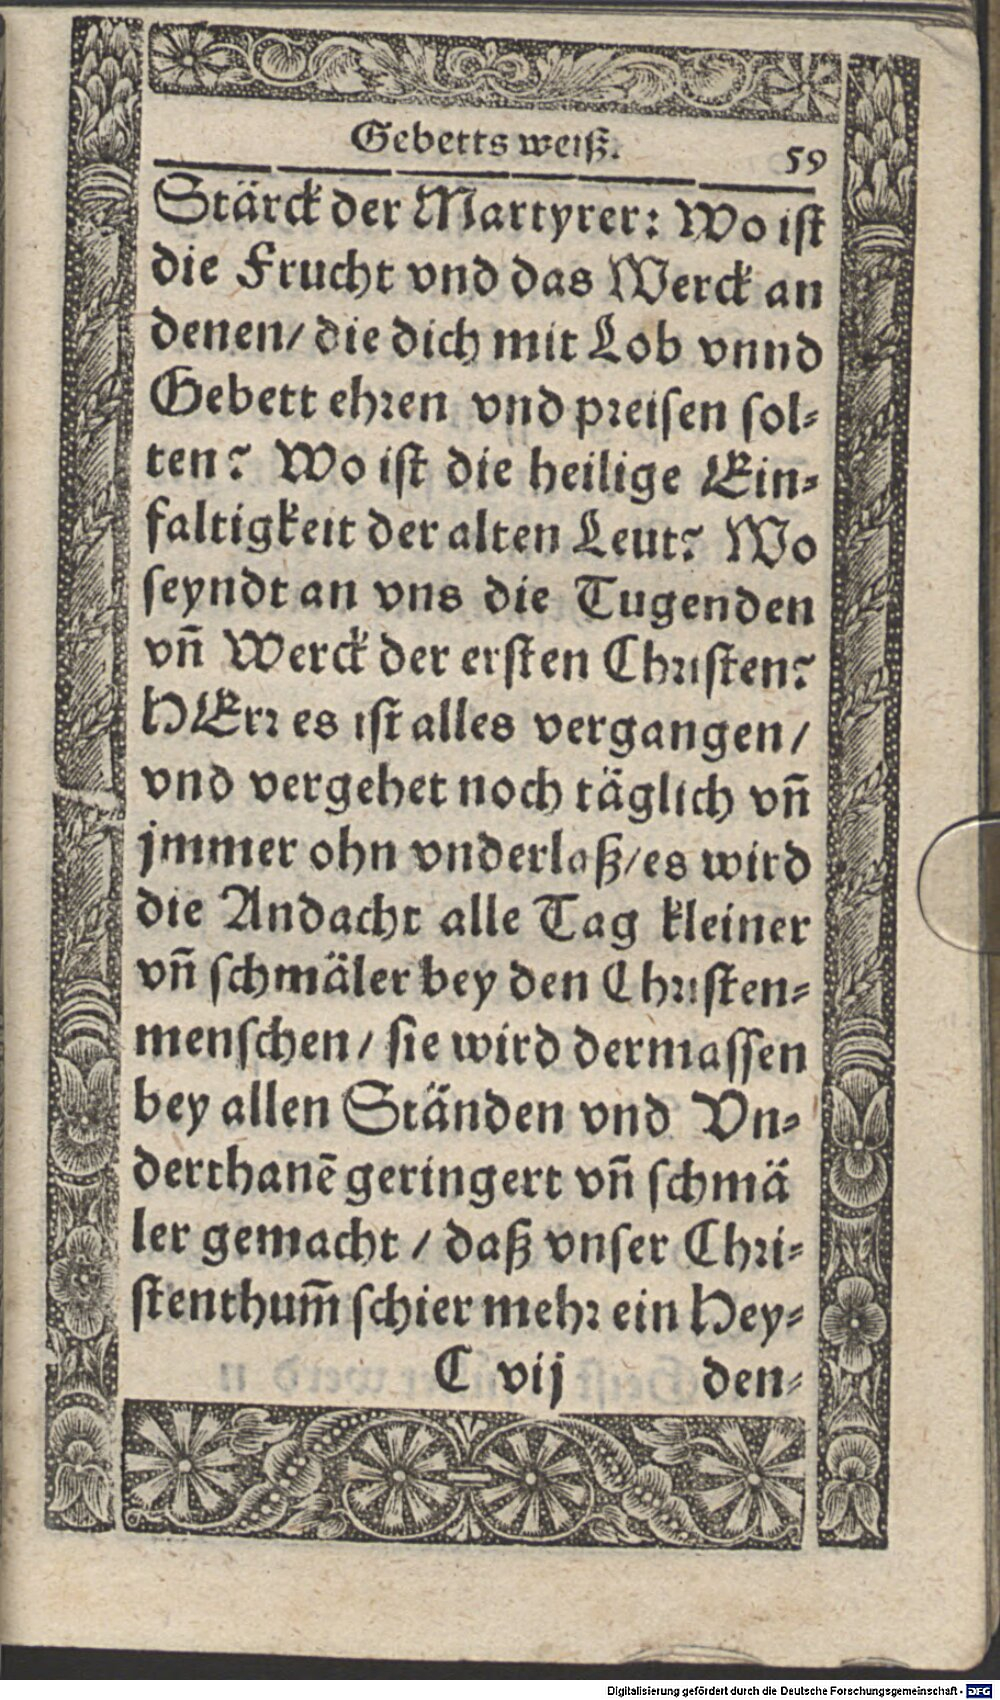 Gebetts weiß. 59
Stärck der Martyrer: Wo ist
die Frucht vnd das Werck an
denen/ die dich mit Lob vnnd
Gebett ehren vnd preisen sol⸗
ten? Wo ist die heilige Ein⸗
faltigkeit der alten Leut? Wo
seyndt an vns die Tugenden
vñ Werck der ersten Christen?
HErr es ist alles vergangen/
vnd vergehet noch täglich vñ
jmmer ohn vnderlaß/ es wird
die Andacht alle Tag kleiner
vñ schmäler bey den Christen⸗
menschen/ sie wird dermassen
bey allen Ständen vnd Vn⸗
derthanē geringert vñ schmä
ler gemacht / daß vnser Chri⸗
stenthum̃ schier mehr ein Hey⸗
C vij den⸗
Digitalisierung gefördert durch die Deutsche Forschungsgemeinschaft - DFG